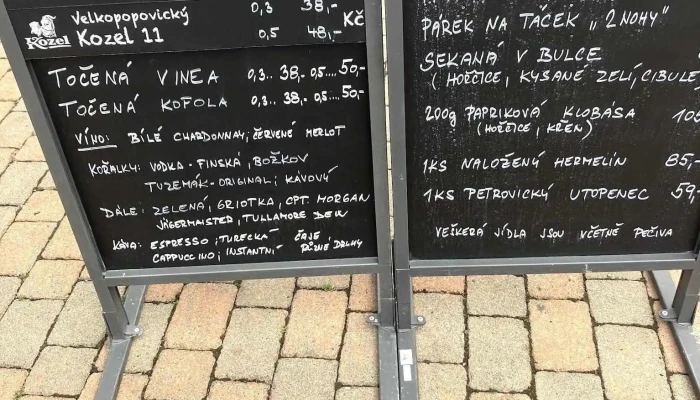 Kozel
Velkopopovický
Kozel 11
0,3 38,-
0,5 48,-
Kč
TOČENÁ VINEA 0,3.. 38,- 0,5.... 50,-
TOČENÁ KOFOLA 0,3.. 38,- 0,5... 50,-
VÍNO: BÍLÉ CHARDONNAY, ČERVENÉ MERLOT
KOŘALKY: VODKA-FINSKÁ, BOŽKOV
TUZEMÁK-ORIGINAL; KÁVOVÝ
DÁLE: ZELENÁ, GRIOTKA, CPT. MORGAN
JÄGERMAISTER, TULLAMORE DEW
KÁVA: ESPRESSO; TURECKÁ ČAJE
CAPPUCCINO; INSTANTNÍ RŮZNÉ DRUHY
PÁREK NA TÁČEK „2 NOHY"
SEKANÁ V BULCE
(HOŘČICE, KYSANÉ ZELÍ, CIBULE)
200g PAPRIKOVÁ KLOBÁSA 105
(HOŘČICE, KŘEN)
1KS NALOŽENÝ HERMELÍN 85,-
1KS PETROVICKÝ UTOPENEC 59,-
VEŠKERÁ JÍDLA JSOU VČETNĚ PEČIVA